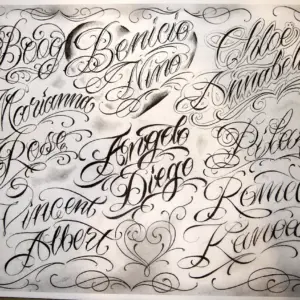 Benicio
Nino
Chloe
Annabell
Marianna
Rose
Angelo
Diego
Pilar
Vincent
Albert
Romeo